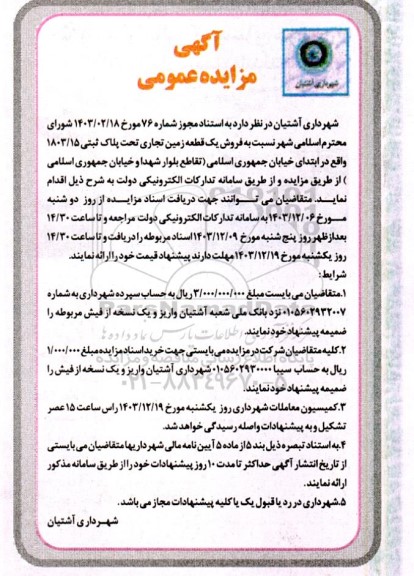 آگهی
مزایده عمومی
شهرداری آشتیان
شهرداری آشتیان در نظر دارد به استناد مجوز شماره ۷۶ مورخ ۱۴۰۳/۰۲/۱۸ شورای
محترم اسلامی شهر نسبت به فروش یک قطعه زمین تجاری تحت پلاک ثبتی ۱۸۰۳/۱۵
واقع در ابتدای خیابان جمهوری اسلامی (تقاطع بلوار شهدا و خیابان جمهوری اسلامی
) از طریق مزایده و از طریق سامانه تدارکات الکترونیکی دولت به شرح ذیل اقدام
نمایـد. متقاضیان می تـوانند جهت دریافت اسناد مزایـده از روز دو شنبه
مـورخ ۱۴۰۳/۱۲/۰۶ به سامانه تدارکات الکترونیکی دولت مراجعه و تا ساعت ۱۴/۳۰
بعدازظهر روز پنج شنبه مورخ ۱۴۰۳/۱۲/۰۹ اسناد مربوطه را دریافت و تا ساعت ۱۴/۳۰
روز یکشنبه مورخ ۱۴۰۳/۱۲/۱۹ مهلت دارند پیشنهاد قیمت خود را ارائه نمایند.
شرایط:
۱.متقاضیان می بایست مبلغ ۳/۰۰۰/۰۰۰/۰۰۰ ریال به حساب سپرده شهرداری به شماره
۰۱۰۵۶۰۴۹۳۲۰۰۷ نزد بانک ملی شعبه آشتیان واریز و یک نسخه از فیش مربوطه را
ضمیمه پیشنهاد خود نمایند.
۲.کلیه متقاضیان شرکت در مزایده می بایستی جهت خرید اسناد مزایده مبلغ ۱/۰۰۰/۰۰۰
ریال به حساب سیبا ۰۱۰۵۶۰۲۹۳۰۰۰۰ شهرداری آشتیان واریز و یک نسخه از فیش را
ضمیمه پیشنهاد خود نمایند.
۳.کمیسیون معاملات شهرداری روز یکشنبه مورخ ۱۴۰۳/۱۲/۱۹ راس ساعت ۱۵ عصر
تشکیل و به پیشنهادات واصله رسیدگی خواهد شد.
۴.به استناد تبصره ذیل بند ۵ از ماده ۵ آیین نامه مالی شهرداریها متقاضیان می بایستی
از تاریخ انتشار آگهی حداکثر تا مدت ۱۰ روز پیشنهادات خود را از طریق سامانه مذکور
ارائه نمایند.
۵.شهرداری در رد یا قبول یک یا کلیه پیشنهادات مجاز می باشد.
شهـرداری آشتیان